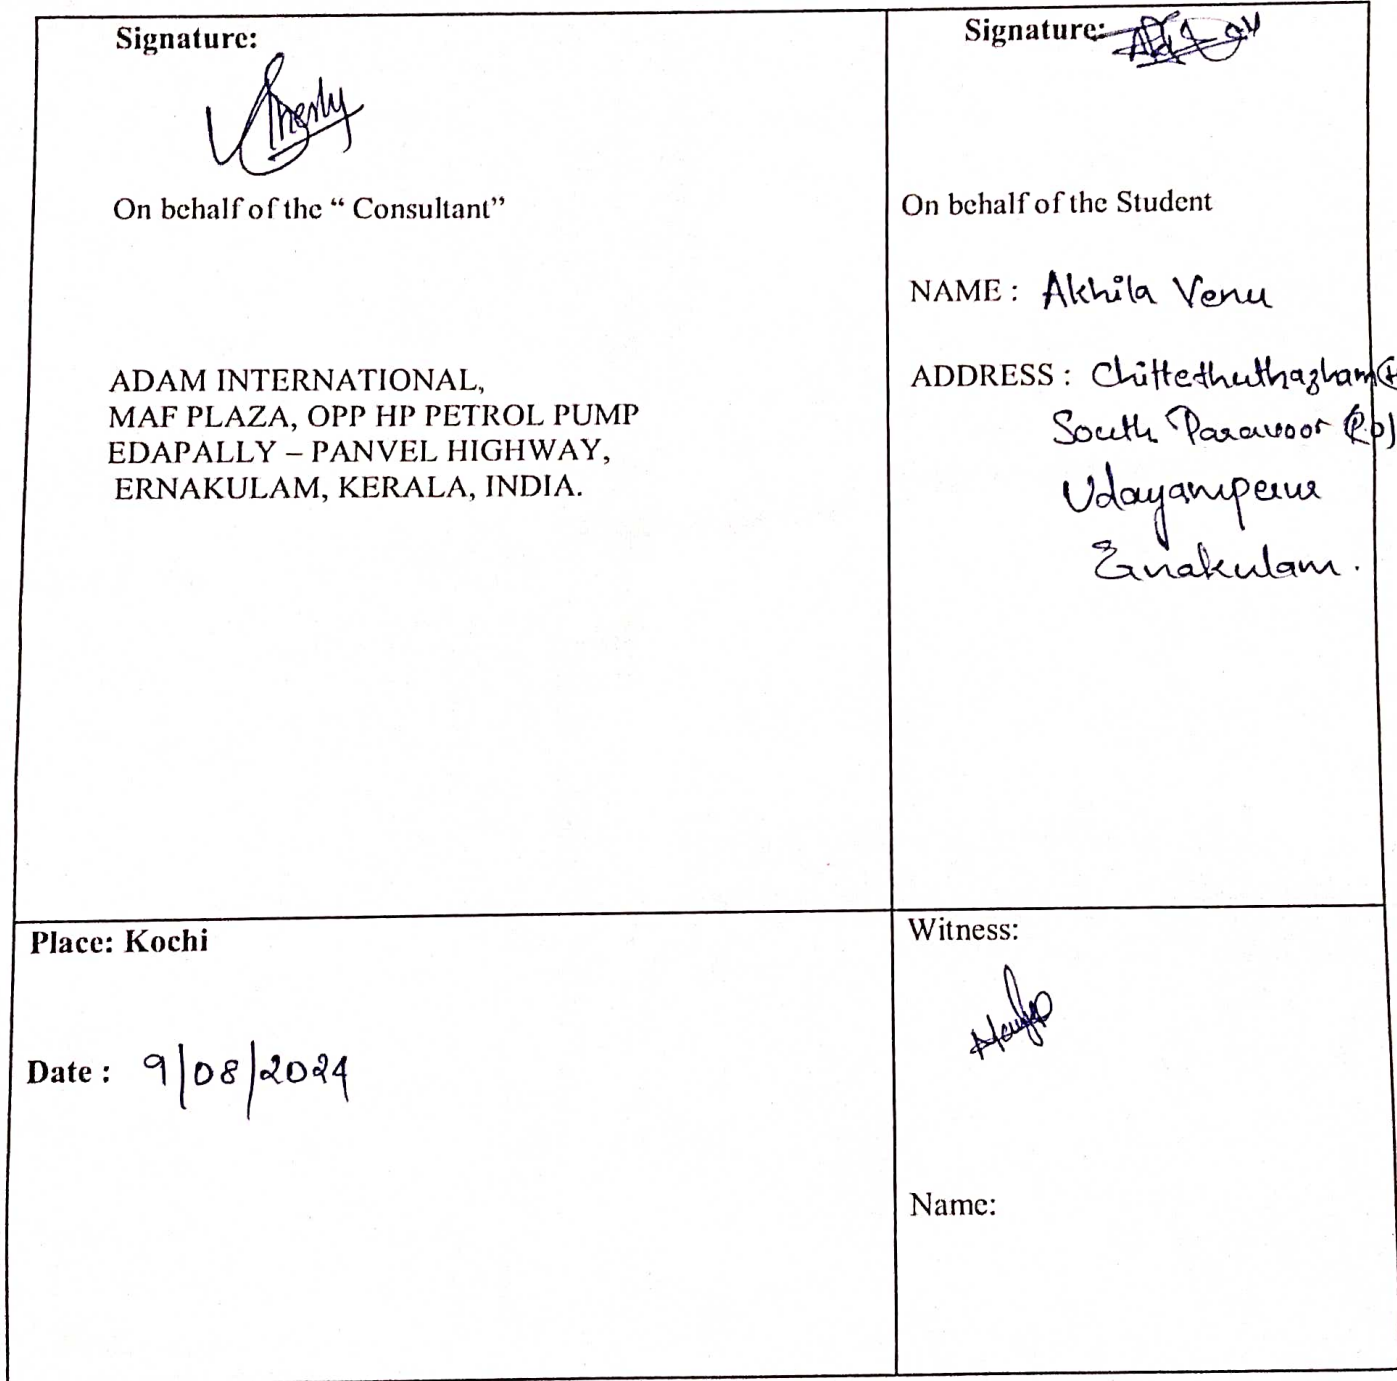 Signature:
On behalf of the “ Consultant”
ADAM INTERNATIONAL,
MAF PLAZA, OPP HP PETROL PUMP
EDAPALLY – PANVEL HIGHWAY,
ERNAKULAM, KERALA, INDIA.
Signature:
On behalf of the Student
NAME : Akhila Venu
ADDRESS : Chittethuthazham (H
South Paravoor (P.O)
Udayamperur
Ernakulam.
Place: Kochi
Date : 9/08/2024
Witness:
Name: